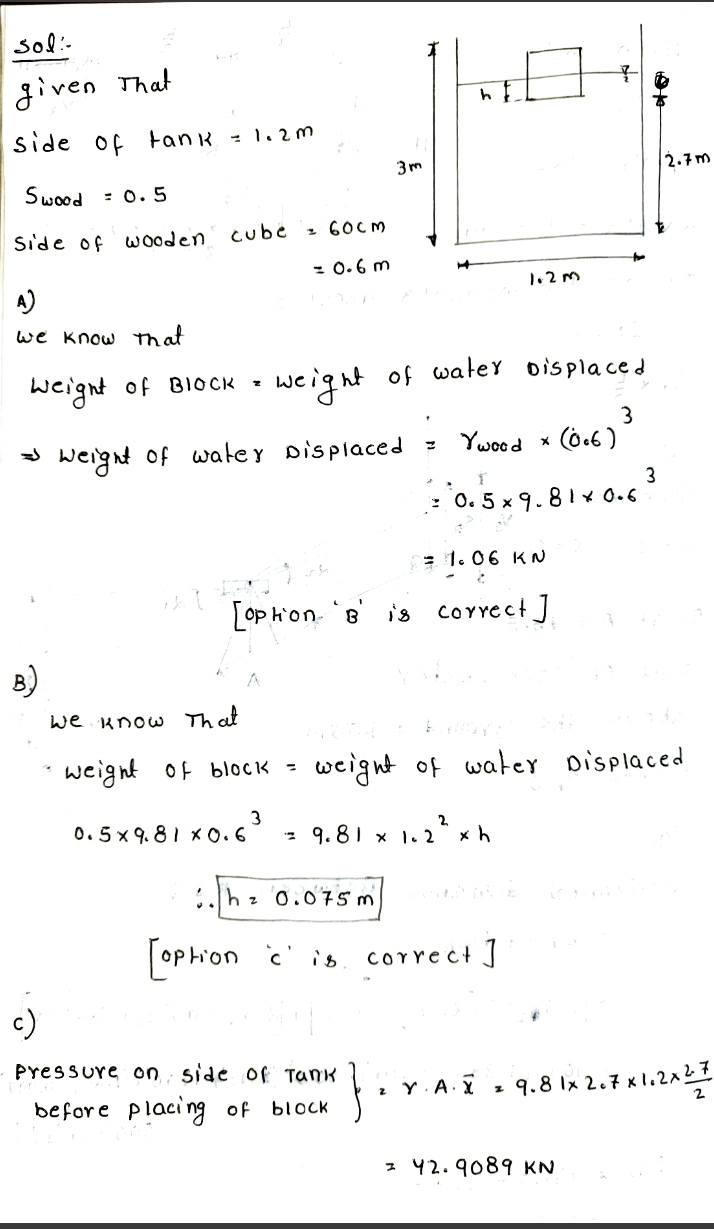 Sol:-
given That
side of tank = 1.2m
Swood = 0.5
side of wooden cube = 60cm
= 0.6 m
h
3m
2.7m
1.2m
A)
We know that
Weight of Block = weight of water Displaced
⇒ Weight of water Displaced = γwood × (0.6)³
= 0.5 × 9.81 × 0.6³
= 1.06 KN
[option 'B' is correct]
B)
We know That
weight of block = weight of water Displaced
0.5×9.81×0.6³ = 9.81 × 1.2² × h
∴ h = 0.075m
[option 'c' is correct]
c)
Pressure on side of Tank
before placing of block } = γ.A.x̄ = 9.81×2.7×1.2×2.7/2
= 42.9089 KN